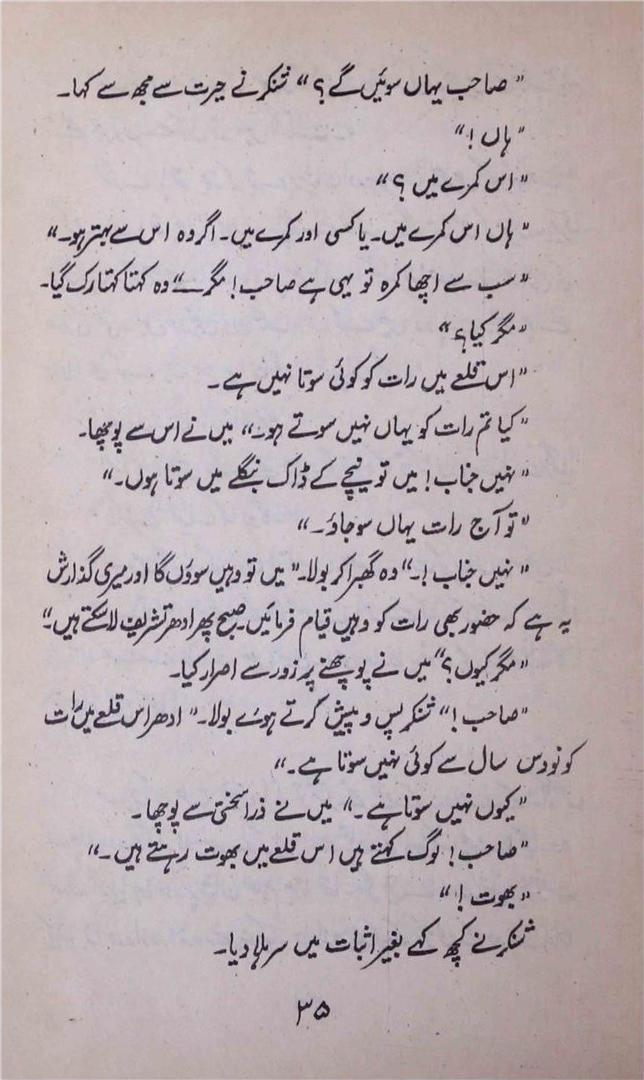 "صاحب یہاں سوئیں گے؟" شنکر نے حیرت سے مجھ سے کہا۔
"ہاں!"
"اس کمرے میں؟"
"ہاں اس کمرے میں۔ یا کسی اور کمرے میں۔ اگر وہ اس سے بہتر ہو۔"
"سب سے اچھا کمرہ تو یہی ہے صاحب! مگر ــــ" وہ کہتا کہتا رک گیا۔
"مگر کیا؟"
"اس قلعے میں رات کو کوئی سوتا نہیں ہے۔
"کیا تم رات کو یہاں نہیں سوتے ہو۔" میں نے اس سے پوچھا۔
"نہیں جناب! میں تو نیچے کے ڈاک بنگلے میں سوتا ہوں۔"
"تو آج رات یہاں سو جاؤ۔"
"نہیں جناب!۔" وہ گھبرا کر بولا۔ "میں تو وہیں سوؤں گا اور میری گذارش
یہ ہے کہ حضور بھی رات کو وہیں قیام فرمائیں۔ صبح پھر ادھر تشریف لا سکتے ہیں۔"
"مگر کیوں؟" میں نے پوچھنے پر زور سے اصرار کیا۔
"صاحب!" شنکر پس و پیش کرتے ہوئے بولا۔ "ادھر اس قلعے میں رات
کو نو دس سال سے کوئی نہیں سوتا ہے۔"
"کیوں نہیں سوتا ہے۔" میں نے ذرا سختی سے پوچھا۔
"صاحب! لوگ کہتے ہیں اس قلعے میں بھوت رہتے ہیں۔"
"بھوت!"
شنکر نے کچھ کہے بغیر اثبات میں سر ہلا دیا۔
۳۵